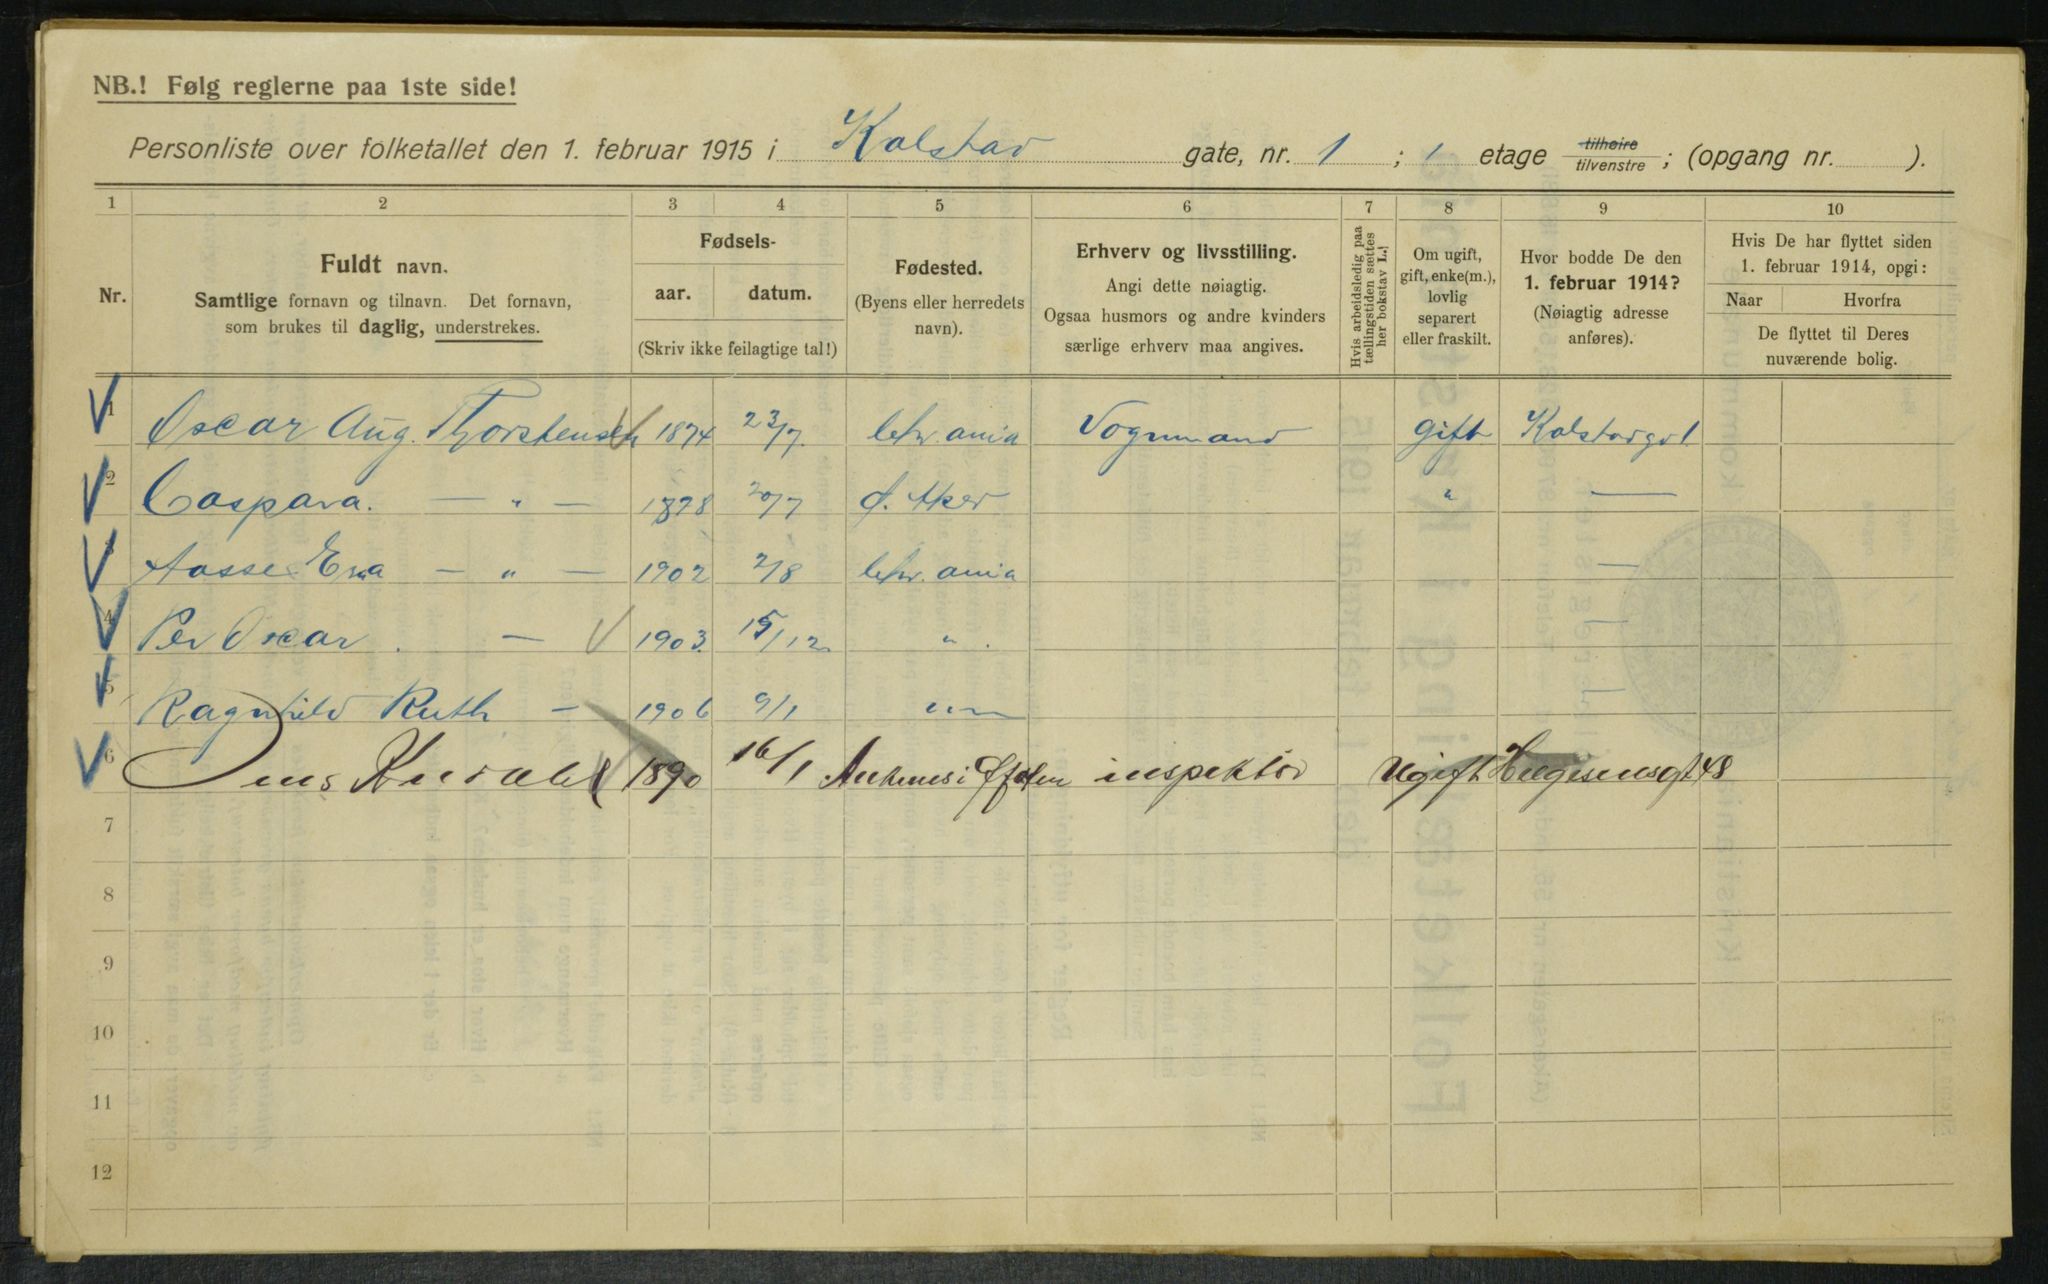 NB.! Følg reglerne paa 1ste side!
Personliste over folketallet den 1. februar 1915 i Kalstad gate, nr. 1 ; 1 etage tilhøire tilvenstre ; (opgang nr. ).
1 2 3 4 5 6 7 8 9 10
Nr.
Fuldt navn.
Samtlige fornavn og tilnavn. Det fornavn,
som brukes til daglig, understrekes.
Fødsels-
aar. datum.
(Skriv ikke feilagtige tal!)
Fødested.
(Byens eller herredets
navn).
Erhverv og livsstilling.
Angi dette nøiagtig.
Ogsaa husmors og andre kvinders
særlige erhverv maa angives.
Hvis arbeidsledig paa
tællingstiden sættes
her bokstav L.!
Om ugift,
gift, enke(m.),
lovlig
separert
eller fraskilt.
Hvor bodde De den
1. februar 1914?
(Nøiagtig adresse
anføres).
Hvis De har flyttet siden
1. februar 1914, opgi:
Naar Hvorfra
De flyttet til Deres
nuværende bolig.
1 Oscar Aug. Thorstensen 1874 23/7 Chr.ania Vognmand gift Kalstadgt 1
2 Caspara. — " — 1878 20/7 Ø. Aker " —
3 Aasse Erna — " — 1902 2/8 Chr.ania —
4 Per Oscar — 1903. 15/12 " . —
5 Ragnhild Ruth — 1906 9/1 —
6 Jens 1890 16/1 inspektør Ugift Helgesensgt 48
7
8
9
10
11
12